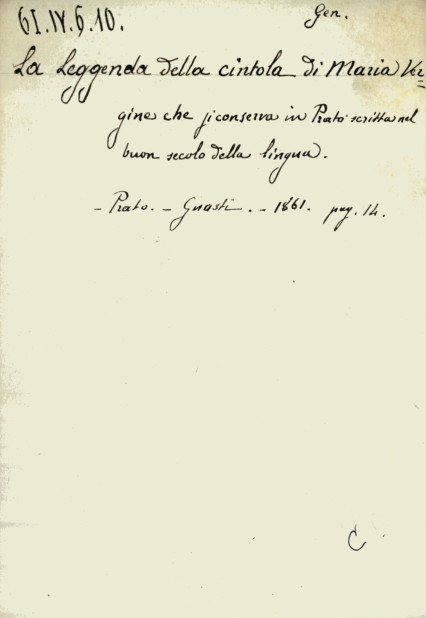 61.IV.6.10.
Gen.
La Leggenda della cintola di Maria Ver=
gine che si conserva in Prato scritta nel
buon secolo della lingua.
- Prato. - Guasti. - 1861. pag. 14.
C